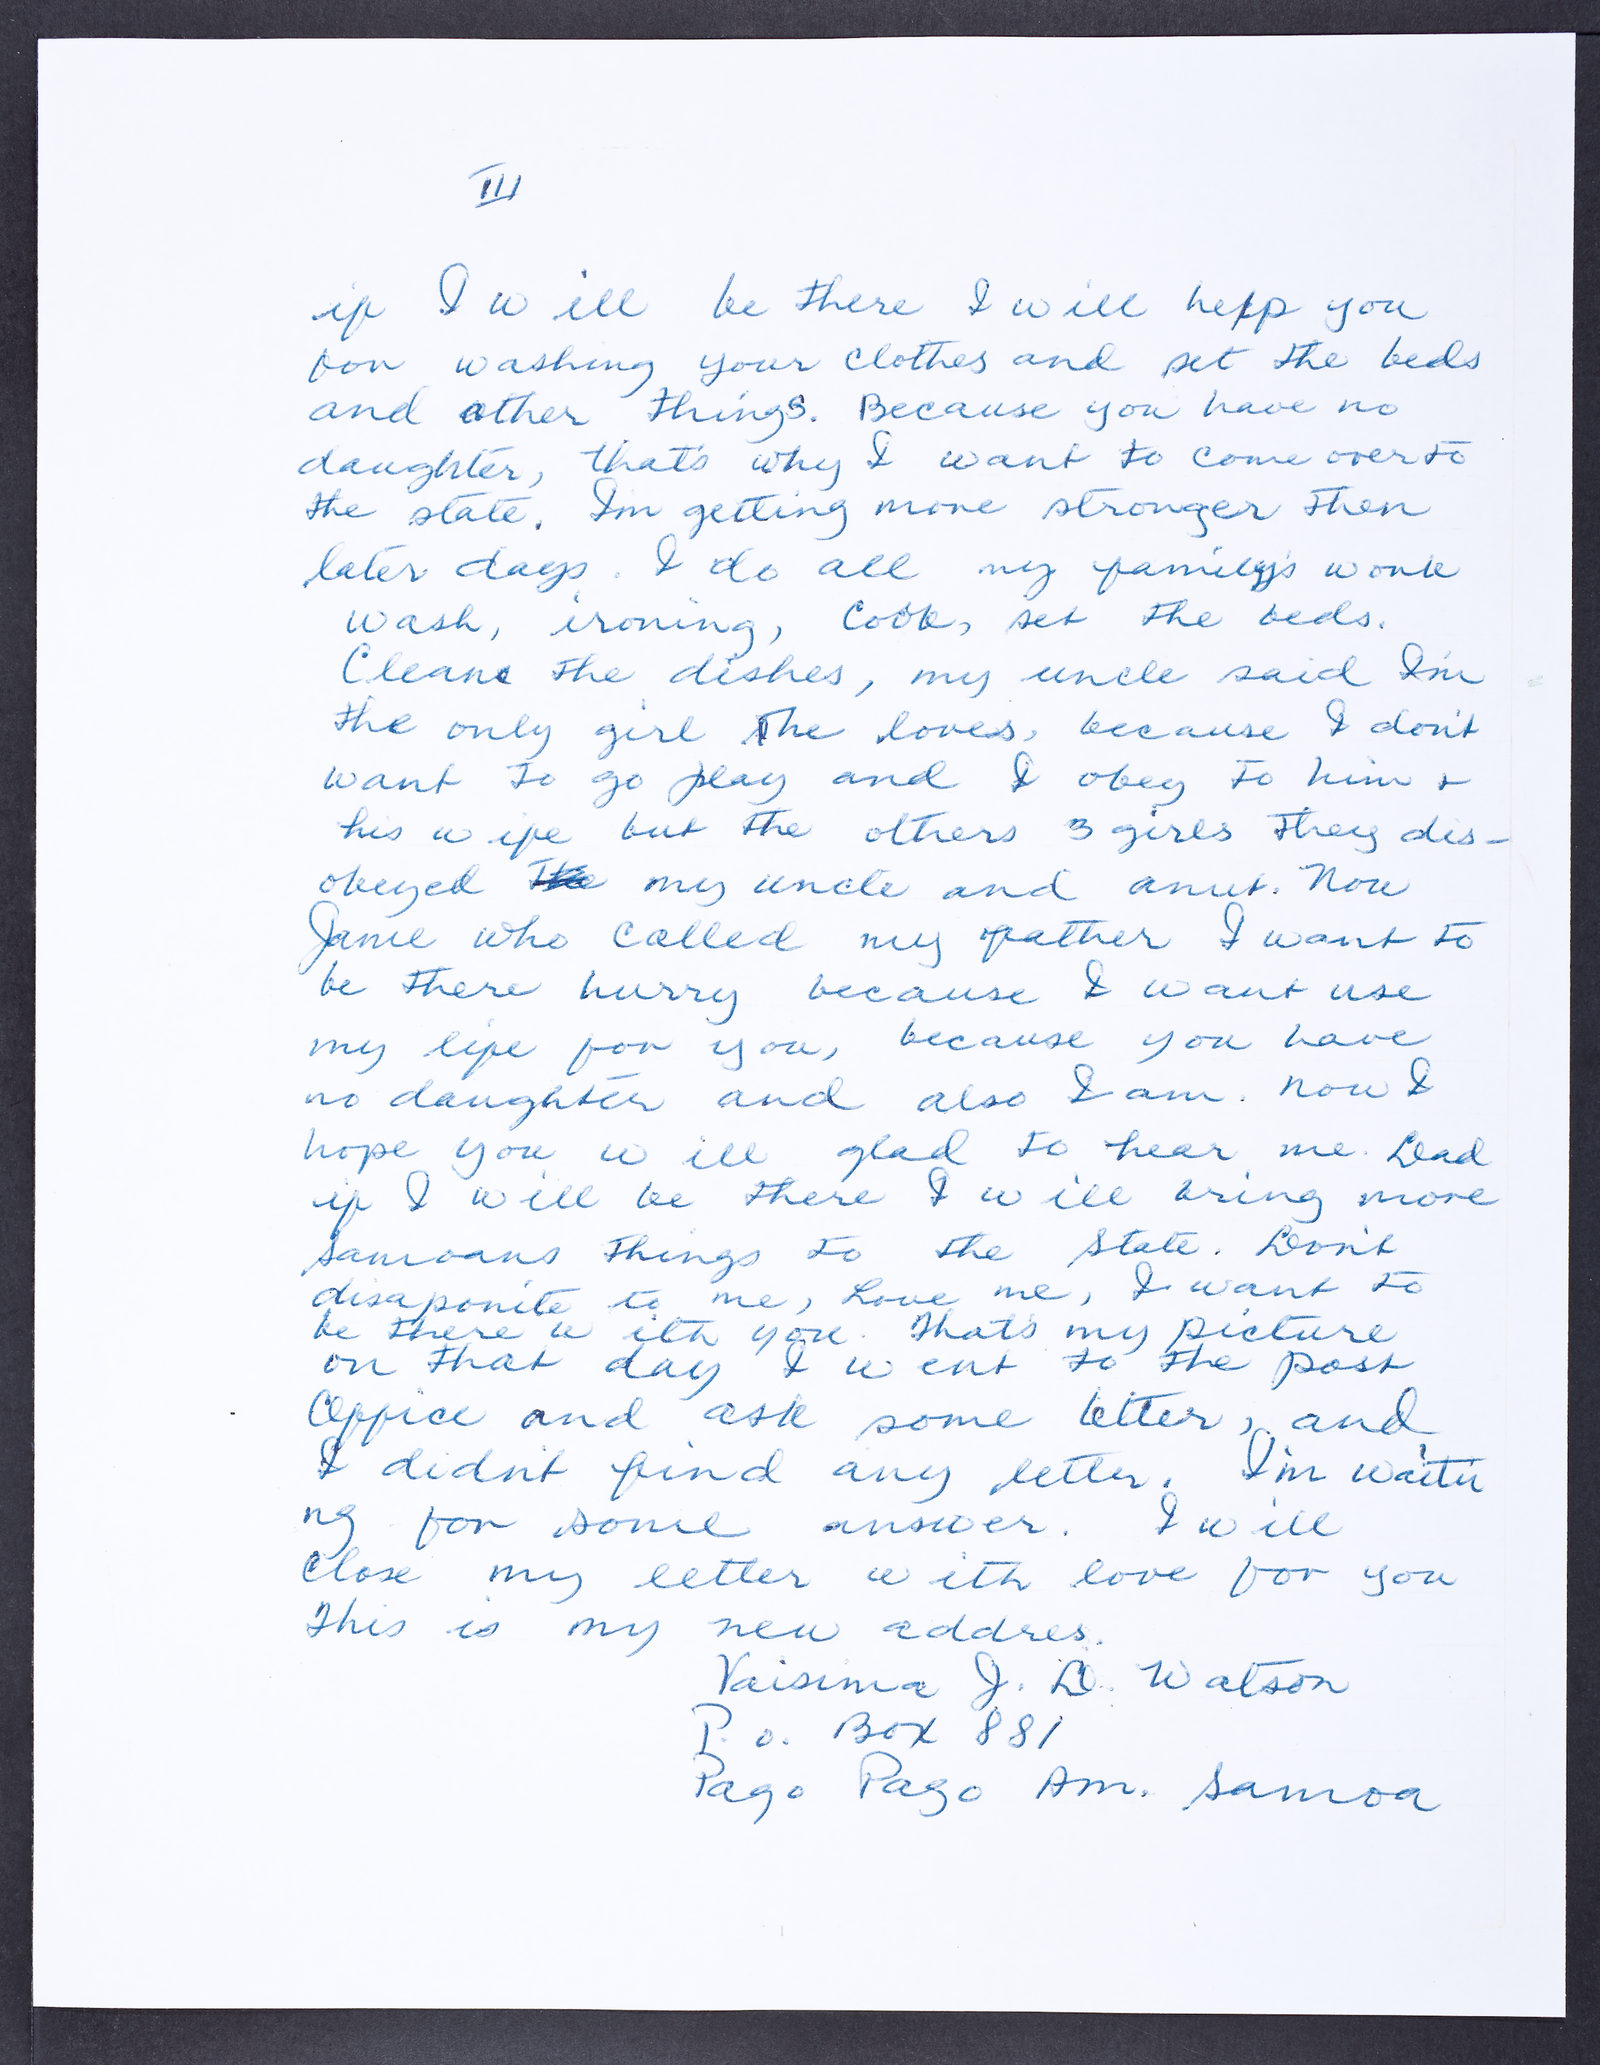 III
if I will be there I will help you
for washing your clothes and set the beds
and other things. Because you have no
daughter, that's why I want to come over to
the state. I'm getting more stronger then
later days. I do all my family's work
wash, ironing, cook, set the beds.
Cleane the dishes, my uncle said I'm
the only girl he loves, because I don't
want to go play and I obey to him +
his wife but the others 3 girls they dis-
obeyed the my uncle and anut. Now
Jame who called my father I want to
be there hurry because I want use
my life for you, because you have
no daughter and also I am. Now I
hope you will glad to hear me. Dad
if I will be there I will bring more
samoans things to the State. Don't
disaponite to me, Love me, I want to
be there with you. That's my picture
on that day I went to the post
Office and ask some letter, and
I didn't find any letter. I'm waiti
ng for some answer. I will
close my letter with love for you
This is my new addres.
Vaisima J. D. Watson
P. o. Box 881
Pago Pago Am. Samoa